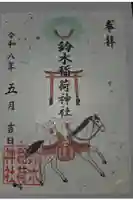 奉拝
鈴木稲荷神社
令和八年
五月
吉日